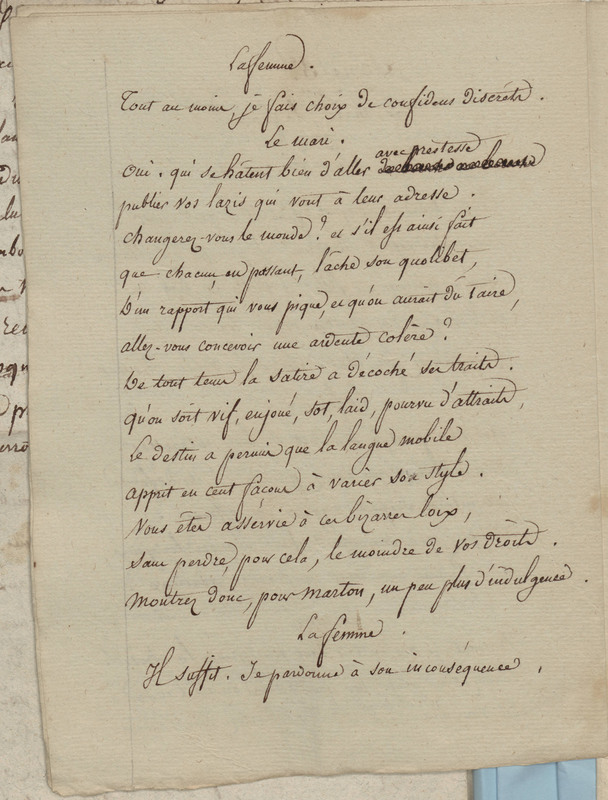 La femme.
Tout au moins, je fais choix de confidens discrèts.
Le mari.
avec prestesse
Oui. qui se hâtent bien d'aller
publier vos lazis qui vont à leur adresse.
changerez-vous le monde? et s'il est ainsi fait
que chacun, en passant, lâche son quolibet,
D'un rapport qui vous pique, et qu'on aurait dû taire,
allez-vous concevoir une ardente colère?
De tout tems la satire a décoché ses traits.
qu'on soit vif, enjoué, sot, laid, pourvu d'attraits,
Le destin a permis que la langue mobile
apprit en cent façons à varier son style.
Vous êtes asservie à ces bizarres loix,
sans perdre, pour cela, le moindre de vos droits.
montrez donc, pour marton, un peu plus d'indulgence.
La femme.
Il suffit. Je pardonne à son inconséquence.